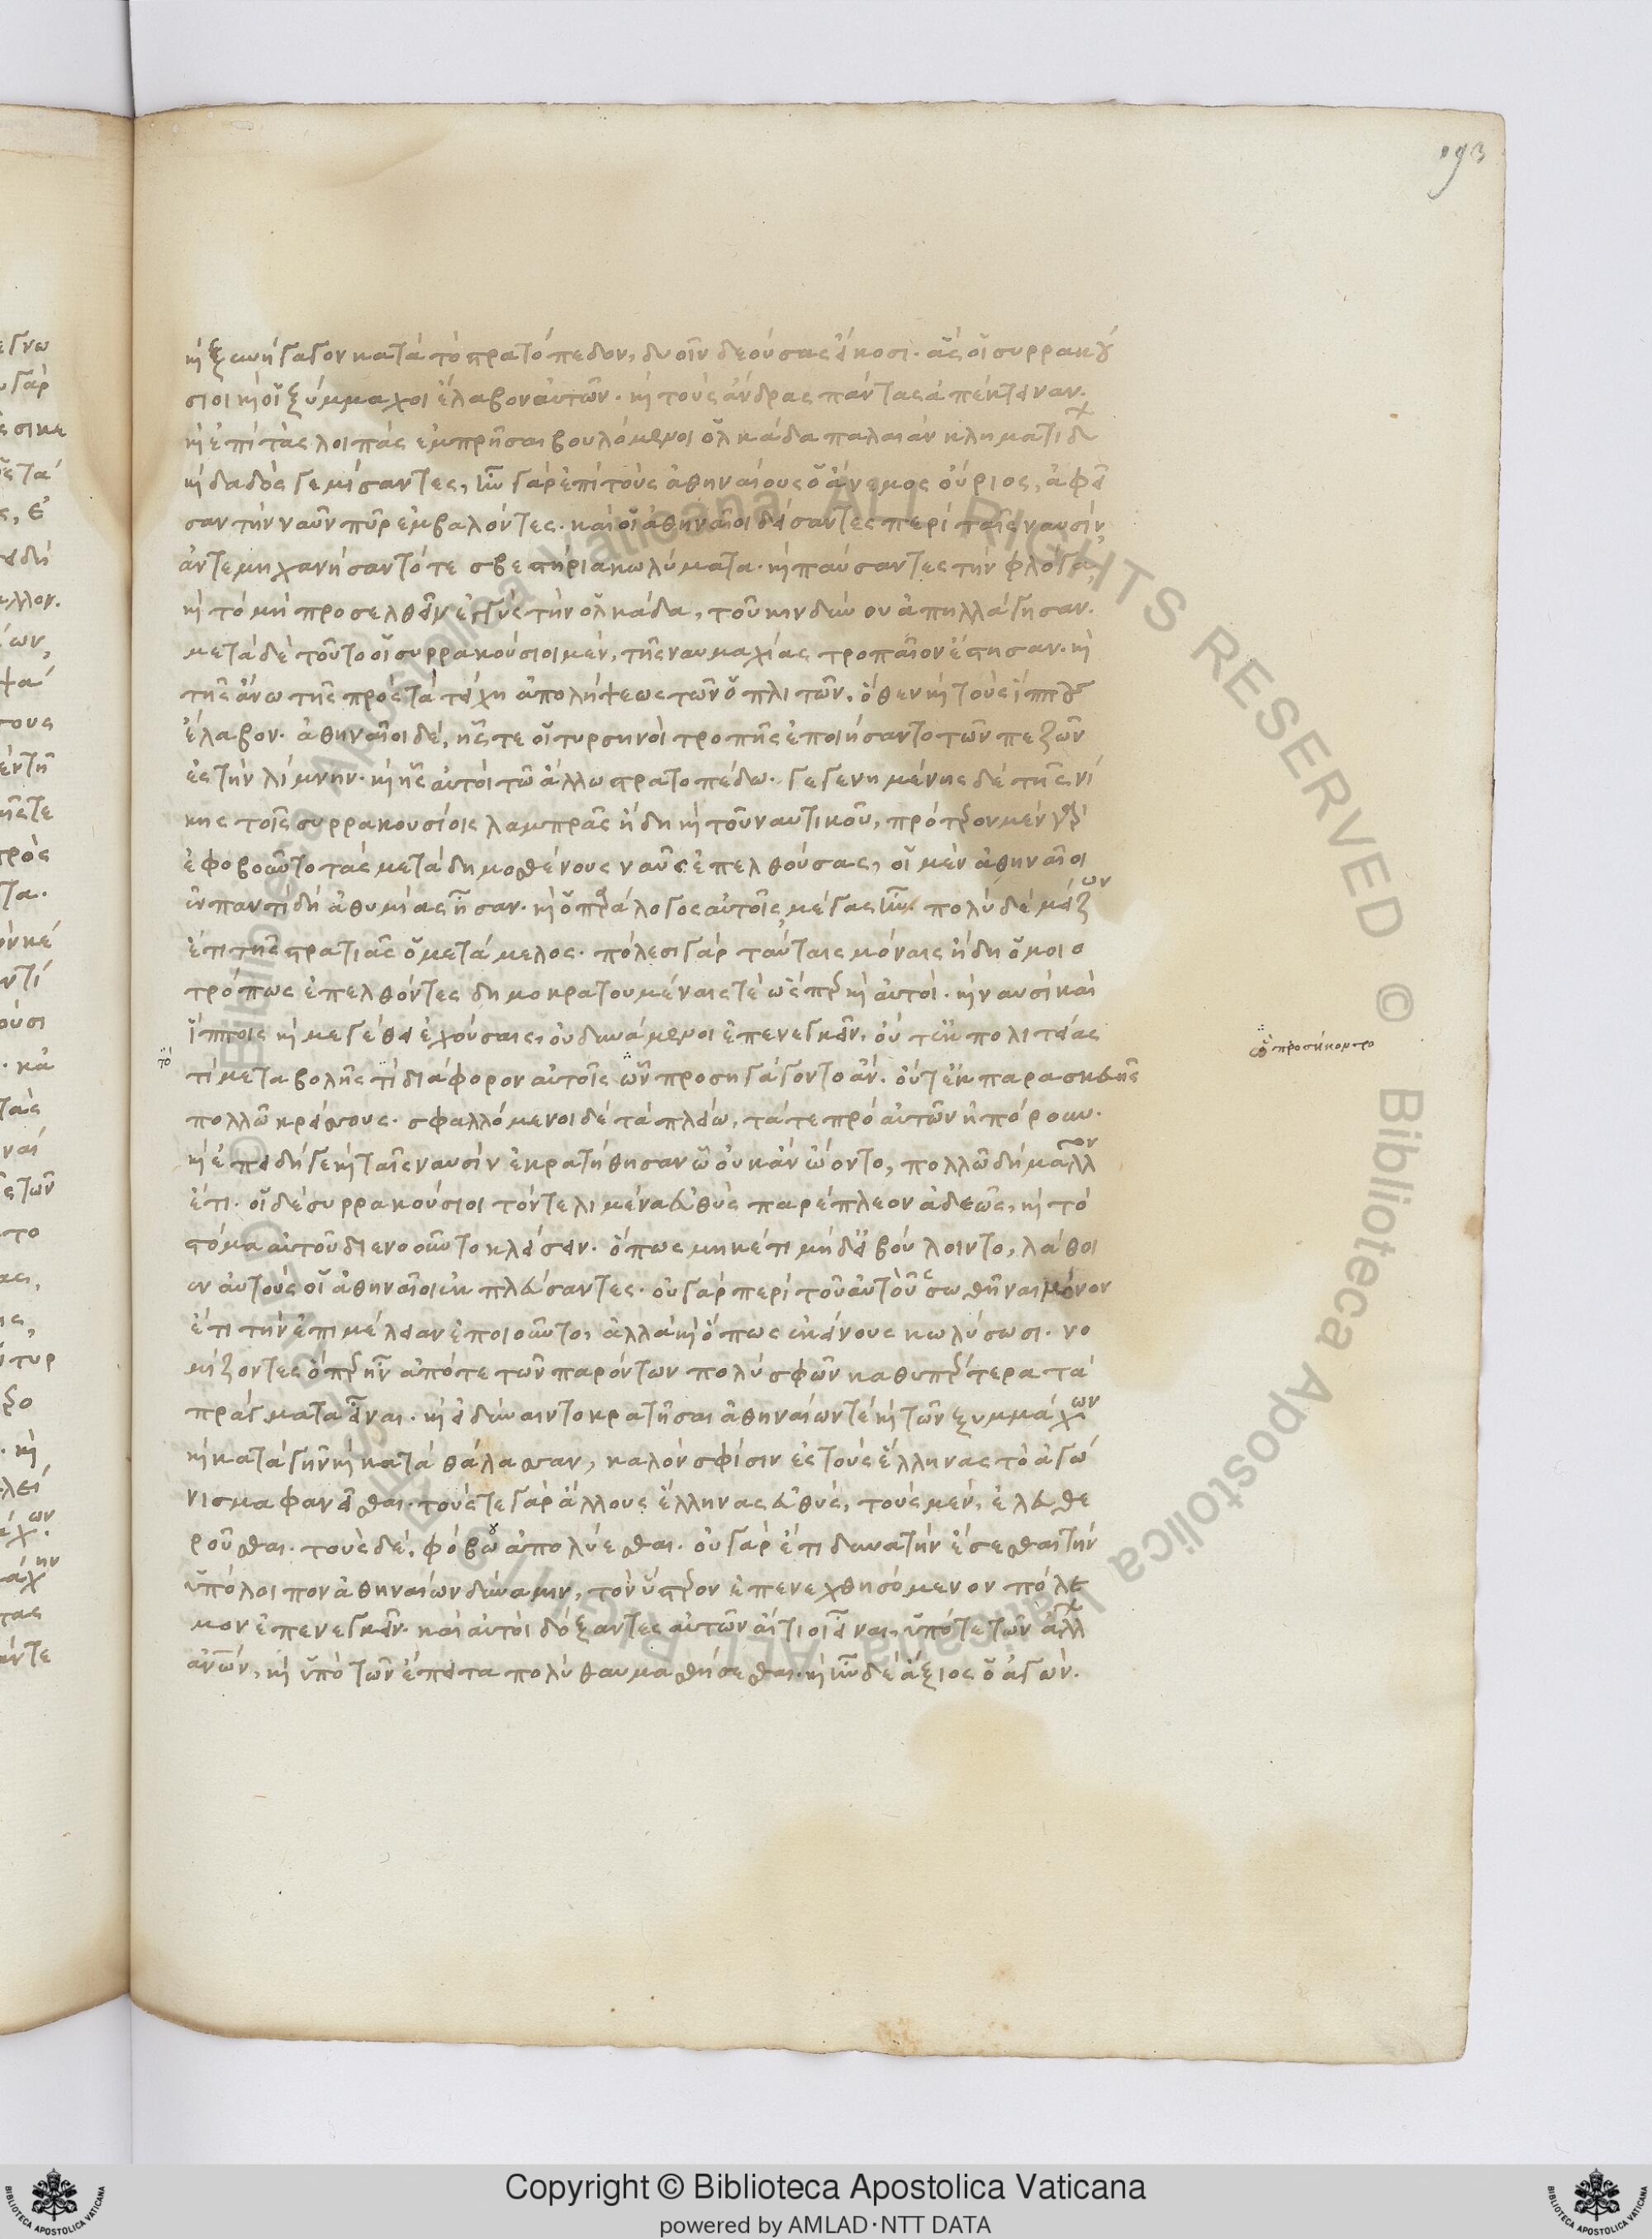 193
καὶ ξυνήγαγον κατὰ τὸ στρατόπεδον, δυοῖν δεούσας εἴκοσι. ἃς οἱ συρρακού
σιοι καὶ οἱ ξύμμαχοι ἔλαβον αὐτῶν. καὶ τοὺς ἄνδρας πάντας ἀπέκτειναν.
καὶ ἐπὶ τὰς λοιπὰς ἐμπρῆσαι βουλόμενοι ὁλκάδα παλαιὰν κληματίδων
καὶ δαδὸς γεμίσαντες, ἦν γὰρ ἐπὶ τοὺς ἀθηναίους ὁ ἄνεμος οὔριος, ἀφεῖ
σαν τὴν ναῦν πῦρ ἐμβαλόντες. καὶ οἱ ἀθηναῖοι δείσαντες περὶ ταῖς ναυσὶν,
ἀντεμηχανήσαντό τε σβεστήρια κωλύματα. καὶ παύσαντες τὴν φλόγα,
καὶ τὸ μὴ προσελθεῖν ἐγγὺς τὴν ὁλκάδα, τοῦ κινδύνου ἀπηλλάγησαν.
μετὰ δὲ τοῦτο οἱ συρρακούσιοι μὲν, τῆς ναυμαχίας τροπαῖον ἔστησαν. καὶ
τῆς ἄνω τῆς πρὸς τὰ τείχη ἀπολήψεως τῶν ὁπλιτῶν. ὅθεν καὶ τοὺς ἵππους
ἔλαβον. ἀθηναῖοι δὲ, ἧς τε οἱ τυρσηνοὶ τροπῆς ἐποιήσαντο τῶν πεζῶν
ἐς τὴν λίμνην. καὶ ἧς αὐτοὶ τῶ ἄλλω στρατοπέδω. γεγενημένης δὲ τῆς νί
κης τοῖς συρρακουσίοις λαμπρᾶς ἤδη καὶ τοῦ ναυτικοῦ, πρότερον μὲν γὰρ
ἐφοβοῦντο τὰς μετὰ δημοσθένους ναῦς ἐπελθούσας, οἱ μὲν ἀθηναῖοι
ἐν παντὶ δὴ ἀθυμίας ἦσαν. καὶ ὁ παράλογος αὐτοῖς μέγας ἦν. πολὺ δὲ μείζων
ἔτι τῆς στρατιᾶς ὁ μετάμελος. πόλεσι γὰρ ταύταις μόναις ἤδη ὁμοιο
τρόπως ἐπελθόντες δημοκρατουμέναις τὲ ὥσπερ καὶ αὐτοί. καὶ ναυσὶ καὶ
ἵπποις καὶ μεγέθει ἐχούσαις, οὐ δυνάμενοι ἐπενεγκεῖν, οὔτ' ἐκ πολιτείας
τὸ
τὶ μεταβολῆς τι διάφορον αὐτοῖς ὧν προσηγάγοντο ἄν. οὔτ' ἐκ παρασκευῆς
ᾧ προσήκοντο
πολλῶ κρείσσους. σφαλλόμενοι δὲ τὰ πλείω, τά τε πρὸ αὐτῶν ἠπόρουν.
καὶ ἐπειδή γε καὶ ταῖς ναυσὶν ἐκρατήθησαν ὃ οὐκ ἂν ὤοντο, πολλῶ δὴ μᾶλλον
ἔτι. οἱ δὲ συρρακούσιοι τόν τε λιμένα εὐθὺς παρέπλεον ἀδεῶς, καὶ τὸ
στόμα αὐτοῦ διενοοῦντο κλείσειν. ὅπως μηκέτι μηδ' εἰ βούλοιντο, λάθοι
εν αὐτοὺς οἱ ἀθηναῖοι ἐκπλεύσαντες. οὐ γὰρ περὶ τοῦ αὐτοὺς σωθῆναι μόνον
ἔτι τὴν ἐπιμέλειαν ἐποιοῦντο, ἀλλὰ καὶ ὅπως ἐκείνους κωλύσωσι. νο
μίζοντες ὅπερ ἦν ἀπό τε τῶν παρόντων πολὺ σφῶν καθυπέρτερα τὰ
πράγματα εἶναι. καὶ εἰ δύναιντο κρατῆσαι ἀθηναίων τὲ καὶ τῶν ξυμμάχων
καὶ κατὰ γῆν καὶ κατὰ θάλασσαν, καλὸν σφίσιν ἐς τοὺς ἕλληνας τὸ ἀγώ
νισμα φανεῖσθαι. τούς τε γὰρ ἄλλους ἕλληνας εὐθὺς, τοὺς μὲν, ἐλευθε
ροῦσθαι. τοὺς δὲ, φόβου ἀπολύεσθαι. οὐ γὰρ ἔτι δυνατὴν ἔσεσθαι τὴν
ὑπόλοιπον ἀθηναίων δύναμιν, τὸν ὕστερον ἐπενεχθησόμενον πόλε
μον ἐπενεγκεῖν. καὶ αὐτοὶ δόξαντες αὐτῶν αἴτιοι εἶναι, ὑπό τε τῶν ἄλλων
ἀνῶν, καὶ ὑπὸ τῶν ἔπειτα πολὺ θαυμασθήσεσθαι. καὶ ἦν δὲ ἄξιος ὁ ἀγών.
Copyright © Biblioteca Apostolica Vaticana
powered by AMLAD·NTT DATA